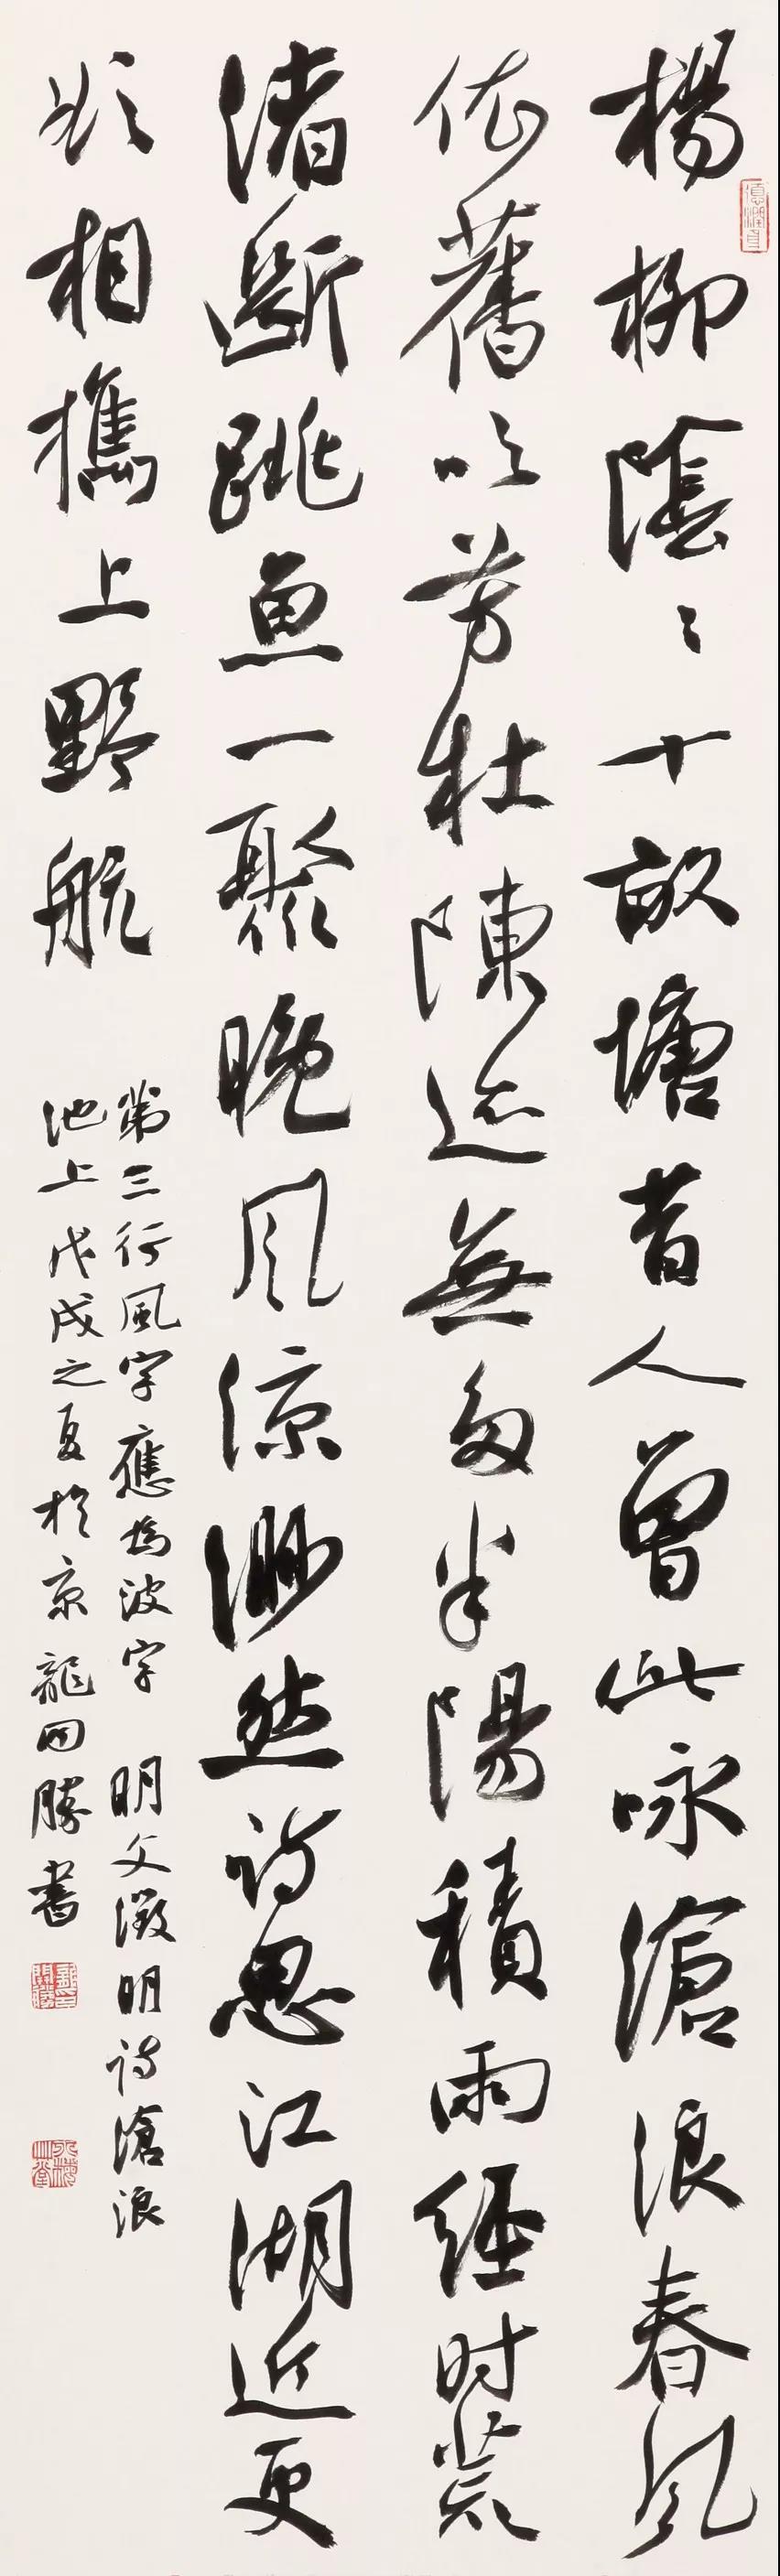 楊柳陰〻十畝塘昔人曾此咏滄浪春风
依舊吹芳杜陳迹無多半陽積雨經时荒
渚斷跳魚一聚晚风涼渺然诗思江湖近更
欲相攜上野航
第三行風字應為波字 明文徵明诗滄浪
池上 戊戌之夏於京 龍開勝書